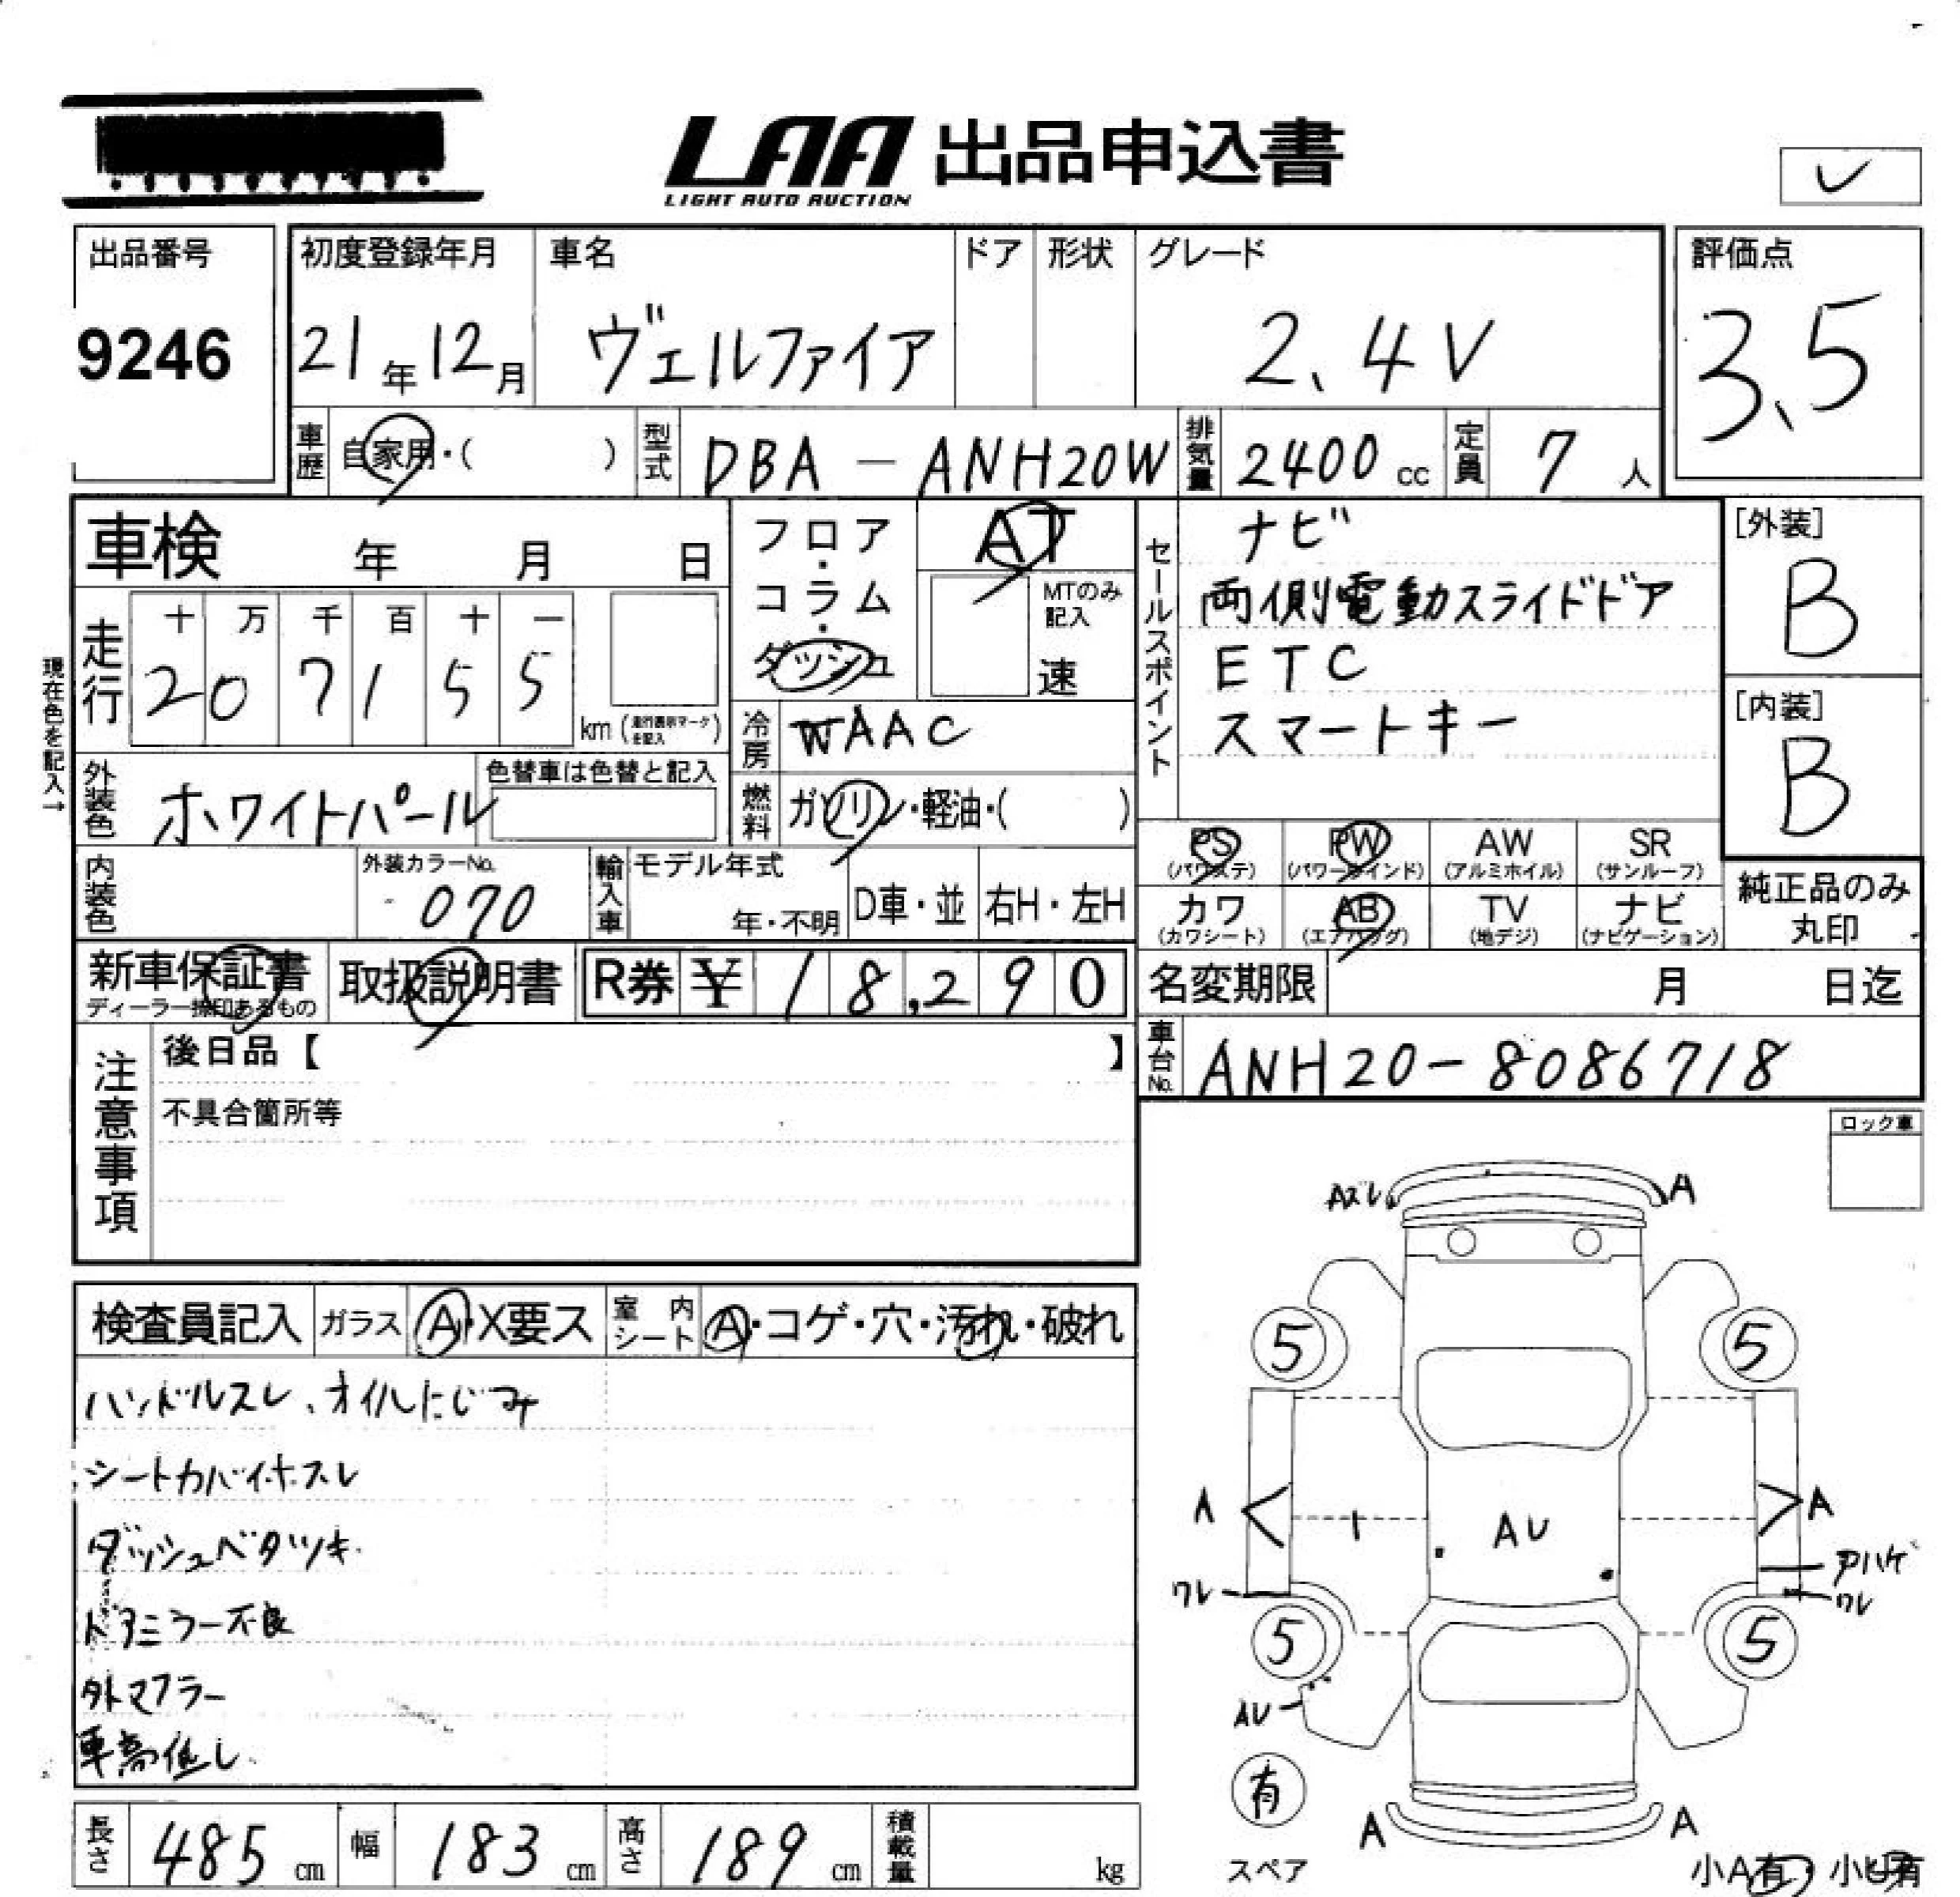 LAA 出品申込書
LIGHT AUTO AUCTION
出品番号
9246
初度登録年月
21年12月
車名
ヴェルファイア
ドア
形状
グレード
2.4V
評価点
3.5
車歴
自家用・( )
型式
DBA-ANH20W
排気量
2400 cc
定員
7人
車検 年 月 日
フロア・コラム・ダッシュ
AT
MTのみ記入
速
セールスポイント
ナビ
両側電動スライドドア
ETC
スマートキー
[外装]
B
[内装]
B
現在色を記入→
走行
十 万 千 百 十 一
2 0 7 1 5 5
km (走行表示マークを記入)
冷房
WAAC
外装色
ホワイトパール
色替車は色替と記入
燃料
ガソリン・軽油・( )
PS (パワステ)
PW (パワーウインド)
AW (アルミホイル)
SR (サンルーフ)
カワ (カワシート)
AB (エアバッグ)
TV (地デジ)
ナビ (ナビゲーション)
純正品のみ丸印
内装色
外装カラーNo.
070
輸入車
モデル年式
年・不明
D車・並
右H・左H
新車保証書
ディーラー捺印あるもの
取扱説明書
R券 ¥ 18,290
名変期限 月 日迄
車台No.
ANH20-8086718
注意事項
後日品【 】
不具合箇所等
ロック車
検査員記入
ガラス
A・X要ス
室内シート
A・コゲ・穴・汚れ・破れ
ハンドルスレ、オイルにじみ
シートカバー キスレ
ダッシュベタツキ
ドアミラー不良
外マフラー
車高低し
Aズレ
A
5
5
A
A
AU
アハゲ
ワレ
ワレ
5
5
AU
有
スペア
A
A
小A有・小U有
長さ
485 cm
幅
183 cm
高さ
189 cm
積載量
kg